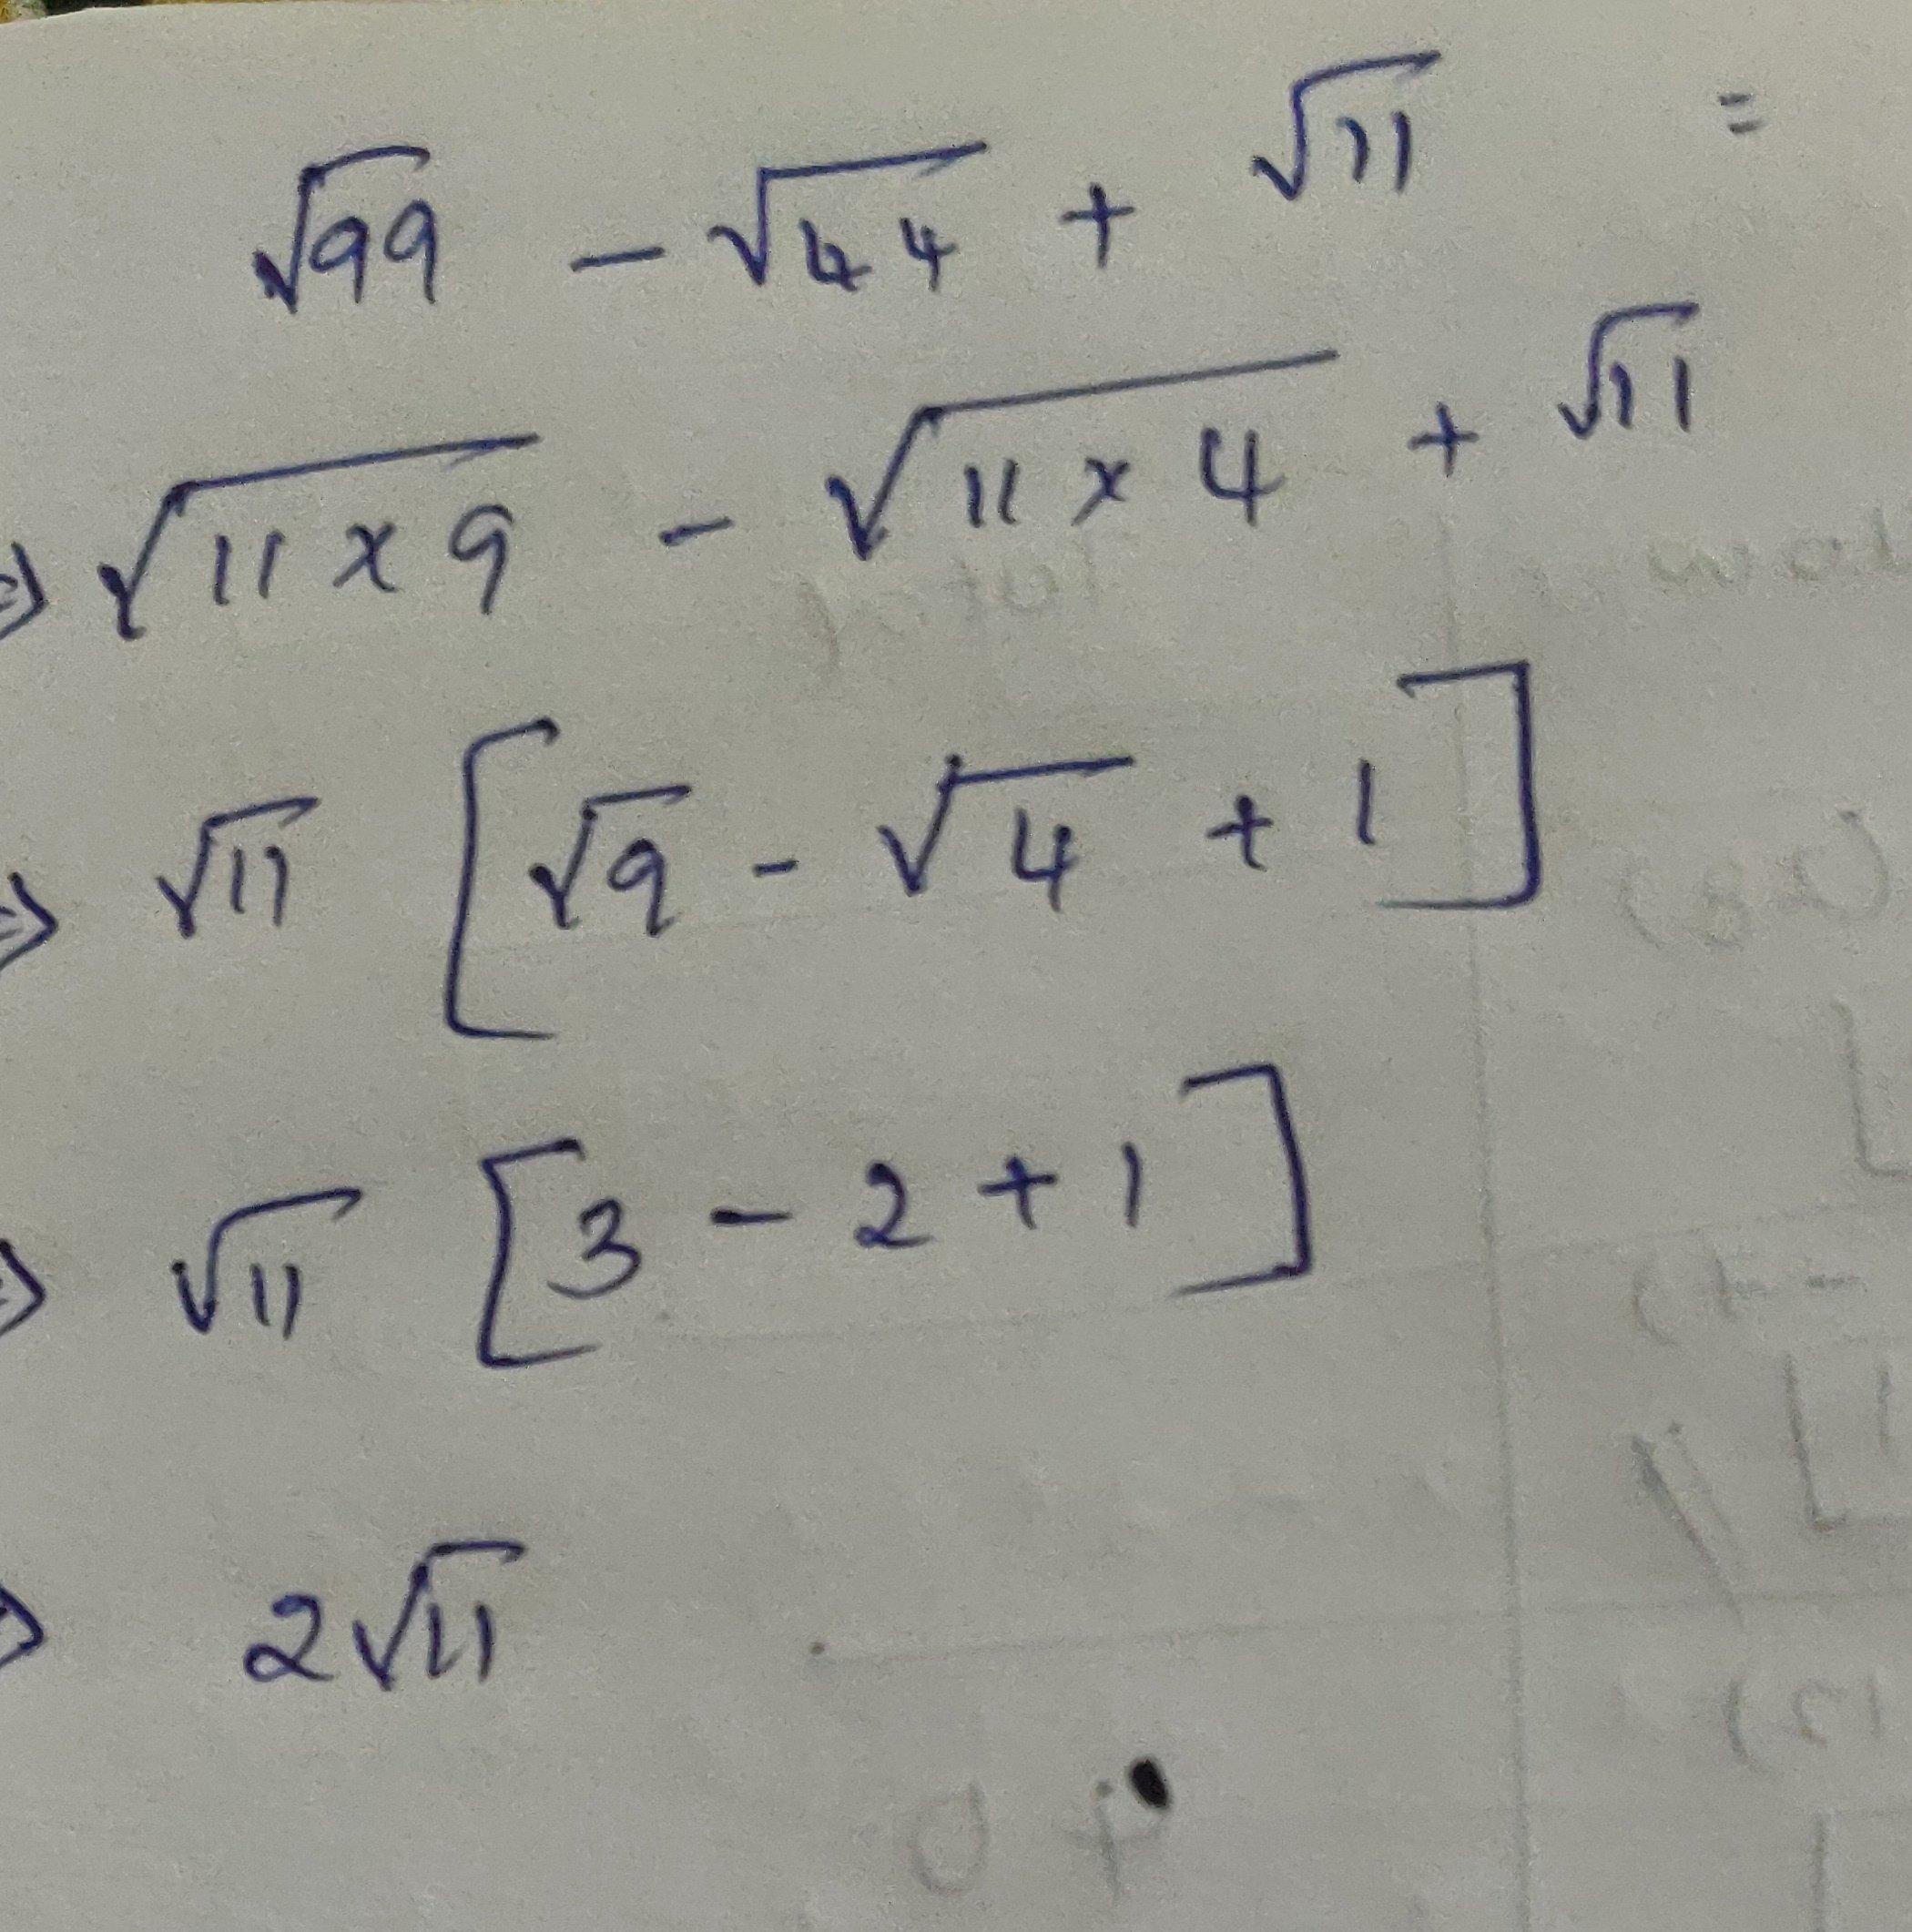 √99 - √44 + √11 =
⇒ √11 × 9 - √11 × 4 + √11
⇒ √11 [√9 - √4 + 1]
⇒ √11 [3 - 2 + 1]
⇒ 2√11